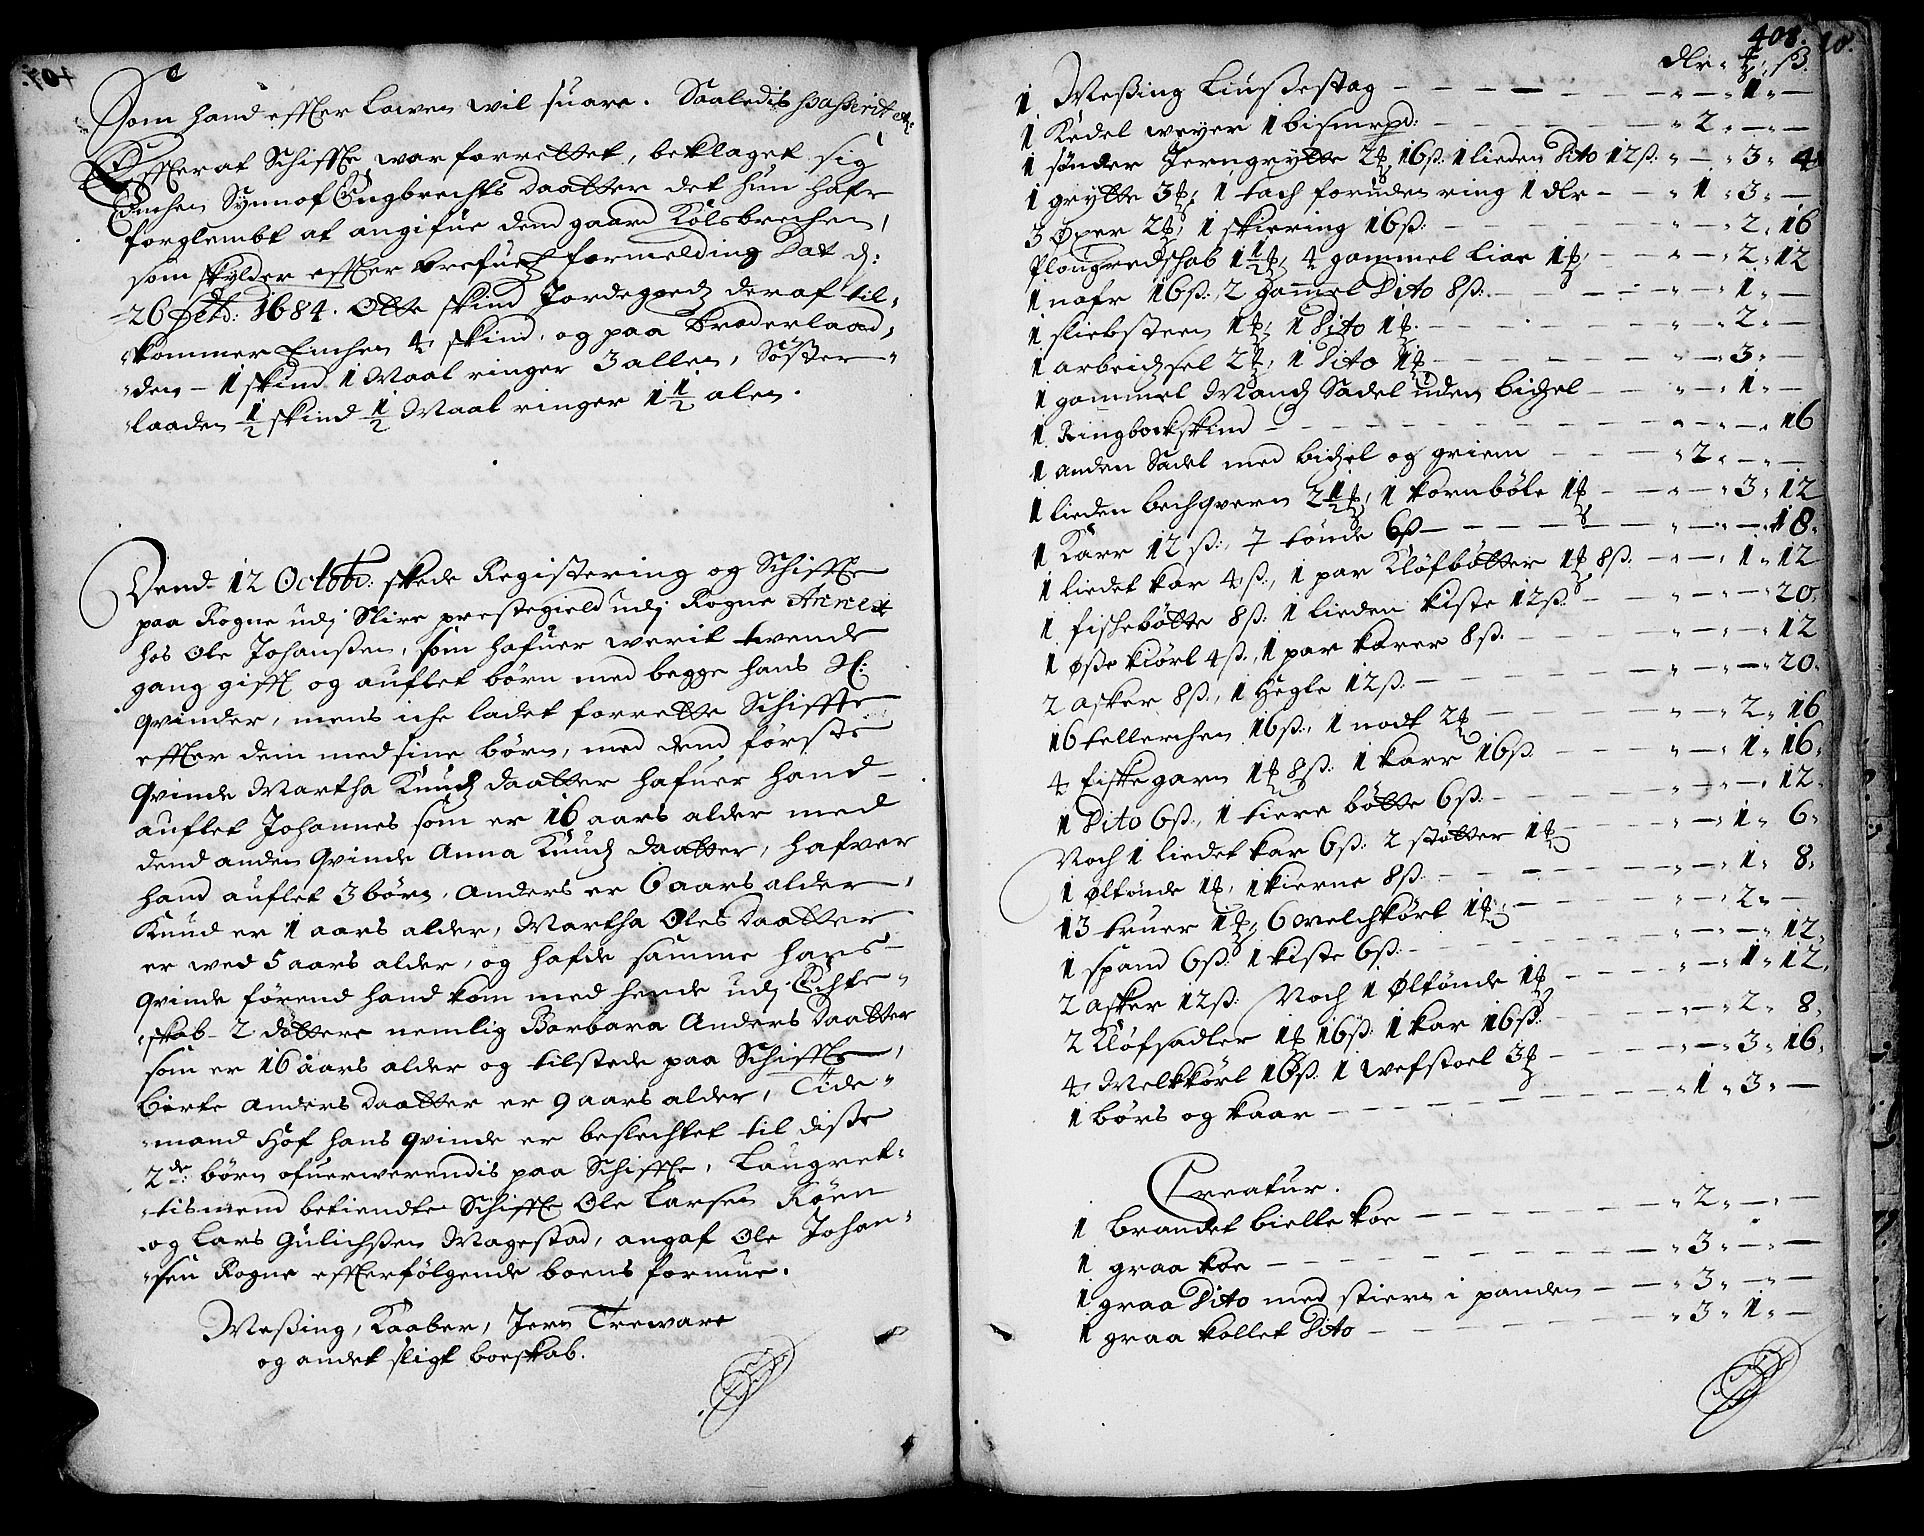 Som hand effter Lawen wil suare. Saaledis passerit
Effteraf Schiffte war forrettet, beklaget sig
Enchen Synnof Engbrechts daatter det hun hafr
forglembt at angifue dend gaard Kolsbrechen,
som skylder effter brefuetz formelding Dat d:
26 1684. Otte skind Jordegodz deraf til-
kommer Enchen 4 skind, og paa Broderlaad-
den - 1 skind 1 Maal ringer 3 allen, Söster-
laaden 1/2 skind 1/2 Maal ringer 1 1/2 alen.
Dend 12 Octobr: skede Registering og Schiffte
paa Rogne udj Slire prestegield udj Rogne Annex
hos Ole Johanßen, som hafuer werit twende
gang gifft og auflet börn med begge hans Sl:
qvinder, mens iche ladet forrette Schiffte
effter dem med sine börn, med dend förste
Qvinde Martha Knudz daatter hafuer hand
auflet Johannes som er 16 aars alder med
dend anden Qvinde Anna Knudz daatter, hafver
hand auflet 3 börn, Anders er 6 aars alder,
Knud er 1 aars alder, Martha Oles daatter
er wed 5 aars alder, og hafde samme hans
Qvinde förend hand kom med hende udj Echte-
skab 2 döttere nemlig Barbara Anders daatter
som er 16 aars alder og tilstede paa Schiffte,
Birte Anders daatter er 9 aars alder, Tide-
mand Hof hans qvinde er beslechtet til diße
2de: börn ofuerwerendis paa Schiffte, Laugret-
tismend betiendte Schiffte Ole Larsen Röen
og Lars Gulichßen Magestad, angaf Ole Johan-
sen Rogne effterfölgende boens formue.
Meßing, Kaaber, Jern Treware
og andet sligt boeskab.
408.
dlr ß.
1 Meßing Liußestag - - - 1 -
1 Kedel weyer 1 bismrpd: - 2 - -
1 sönder Jerngrytte 2 16ß. 1 lieden Dito 12ß. - 3 4
1 grytte 3 1 tach foruden ring 1 dlr - 1 3 -
3 Öxer 2 1 skiering 16ß: - 2 16
Plougredschab 1 1/2 4 gammel liar 1 - 2 12
1 nafr 16ß. 2 gammel Dito 8ß. - 1 -
1 sliebsteen 1 1 Dito 1 - 2 -
1 arbeidzsel 2 1 Dito 1 - 3
1 gammel Mandz Sadel uden bidzel - 1 -
1 Ringbockskind - - 16
1 anden Sadel med bidzel og griem 2 - -
1 lieden bechqvern 2 1/2 1 kornböle 1 - 3 12
1 Karr 12 ß., 7 tönde 6ß - - 18
1 liedet kar 4ß., 1 par Klöfbötter 1 8ß. - 1 12
1 fischebötte 8ß. 1 lieden kiste 12ß. - - 20
1 öße kiörl 4ß., 1 par karer 8ß. - - 12
2 asker 8ß., 1 Hegle 12ß. - - 20
16 tellerchen 16ß., 1 nodt 2 - 2 16
4 fiskegarn 1 8ß. 1 karr 16ß. - 1 16
1 Dito 6ß., 1 tiere bötte 6ß. - - 12
Noch 1 liedet kar 6ß. 2 stötter 1 - 1 6
1 öltönde 1 1 kierne 8ß. - 1 8
13 truer 1 6 melchkörl 1 - 2 -
1 spand 6ß. 1 kiste 6ß. - - 12
2 asker 12ß. Noch 1 Öltönde 1 - 1 12
2 Klöfsadler 1 16ß. 1 kar 16ß. - 2 8
4 Melkkörl 16ß. 1 wefstoel 3 - 3 16
1 börs og kaar - 1 3 -
Creatur.
1 brandet bielle koe - 2 - -
1 graa koe - 3 - -
1 graa Dito med stiern i panden - 3 - -
1 graa kollet Dito - 3 1 -